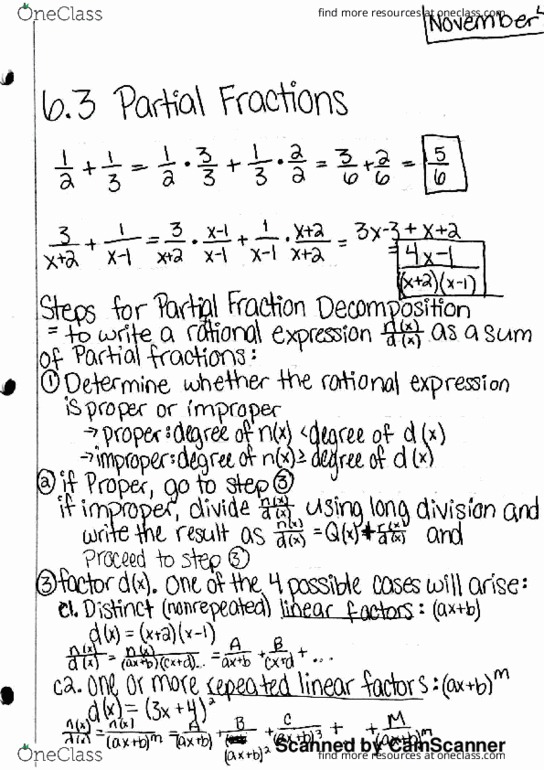 OneClass
find more resources at oneclass.com
November
6.3 Partial Fractions
1/2 + 1/3 = 1/2 · 3/3 + 1/3 · 2/2 = 3/6 + 2/6 = 5/6
3/(x+2) + 1/(x-1) = 3/(x+2) · (x-1)/(x-1) + 1/(x-1) · (x+2)/(x+2) = 3x-3 + x+2
= (4x-1)/((x+2)(x-1))
Steps for Partial Fraction Decomposition
= to write a rational expression n(x)/d(x) as a sum
of Partial fractions:
① Determine whether the rational expression
is proper or improper
→ proper: degree of n(x) < degree of d(x)
→ improper: degree of n(x) ≥ degree of d(x)
② if Proper, go to step ③
if improper, divide n(x)/d(x) using long division and
write the result as n(x)/d(x) = Q(x) + r(x)/d(x) and
Proceed to step ③
③ factor d(x). One of the 4 possible cases will arise:
c1. Distinct (nonrepeated) linear factors: (ax+b)
d(x) = (x+2)(x-1)
n(x)/d(x) = n(x)/((ax+b)(cx+d)... = A/(ax+b) + B/(cx+d) + ...
c2. One or more repeated linear factors: (ax+b)^m
d(x) = (3x+4)^2
n(x)/d(x) = n(x)/(ax+b)^m = A/(ax+b) + B/(ax+b)^2 + C/(ax+b)^3 + + M/(ax+b)^m
Scanned by CamScanner
OneClass
find more resources at oneclass.com